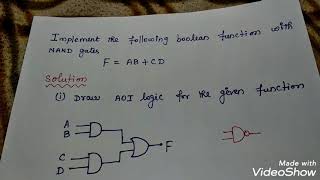 Implement the following boolean function with
NAND gates
F = AB + CD
Solution
(i) Draw AOI logic for the given function
A
B
F
C
D
Made with
VideoShow